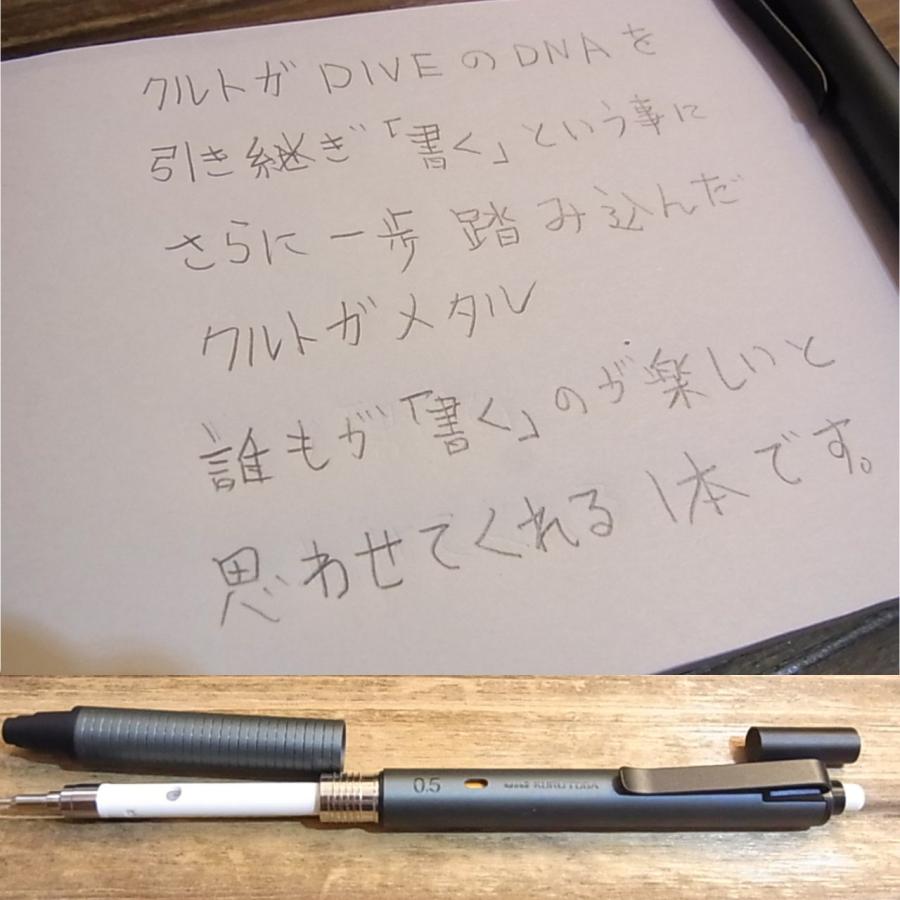 クルトガ DIVEのDNAを
引き継ぎ「書く」という事に
さらに一歩 踏み込んだ
クルトガメタル
誰もが「書く」のが楽しいと
思わせてくれる 1本です。
0.5 uni KURUTOGA